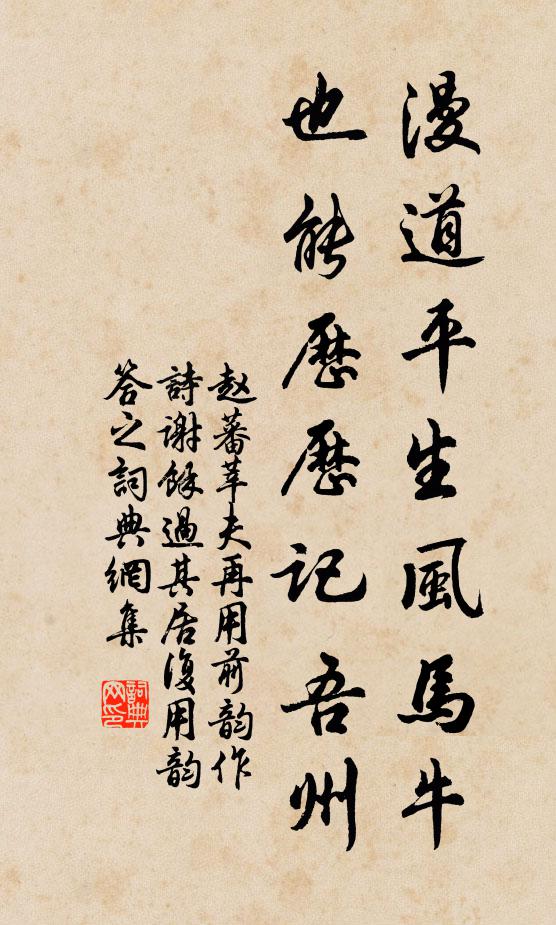 漫道平生風馬牛
也能歷歷記吾州
赵蕃莘夫再用前韵作
詩谢餘過其居復用韵
答之詞典網集
詞典网印